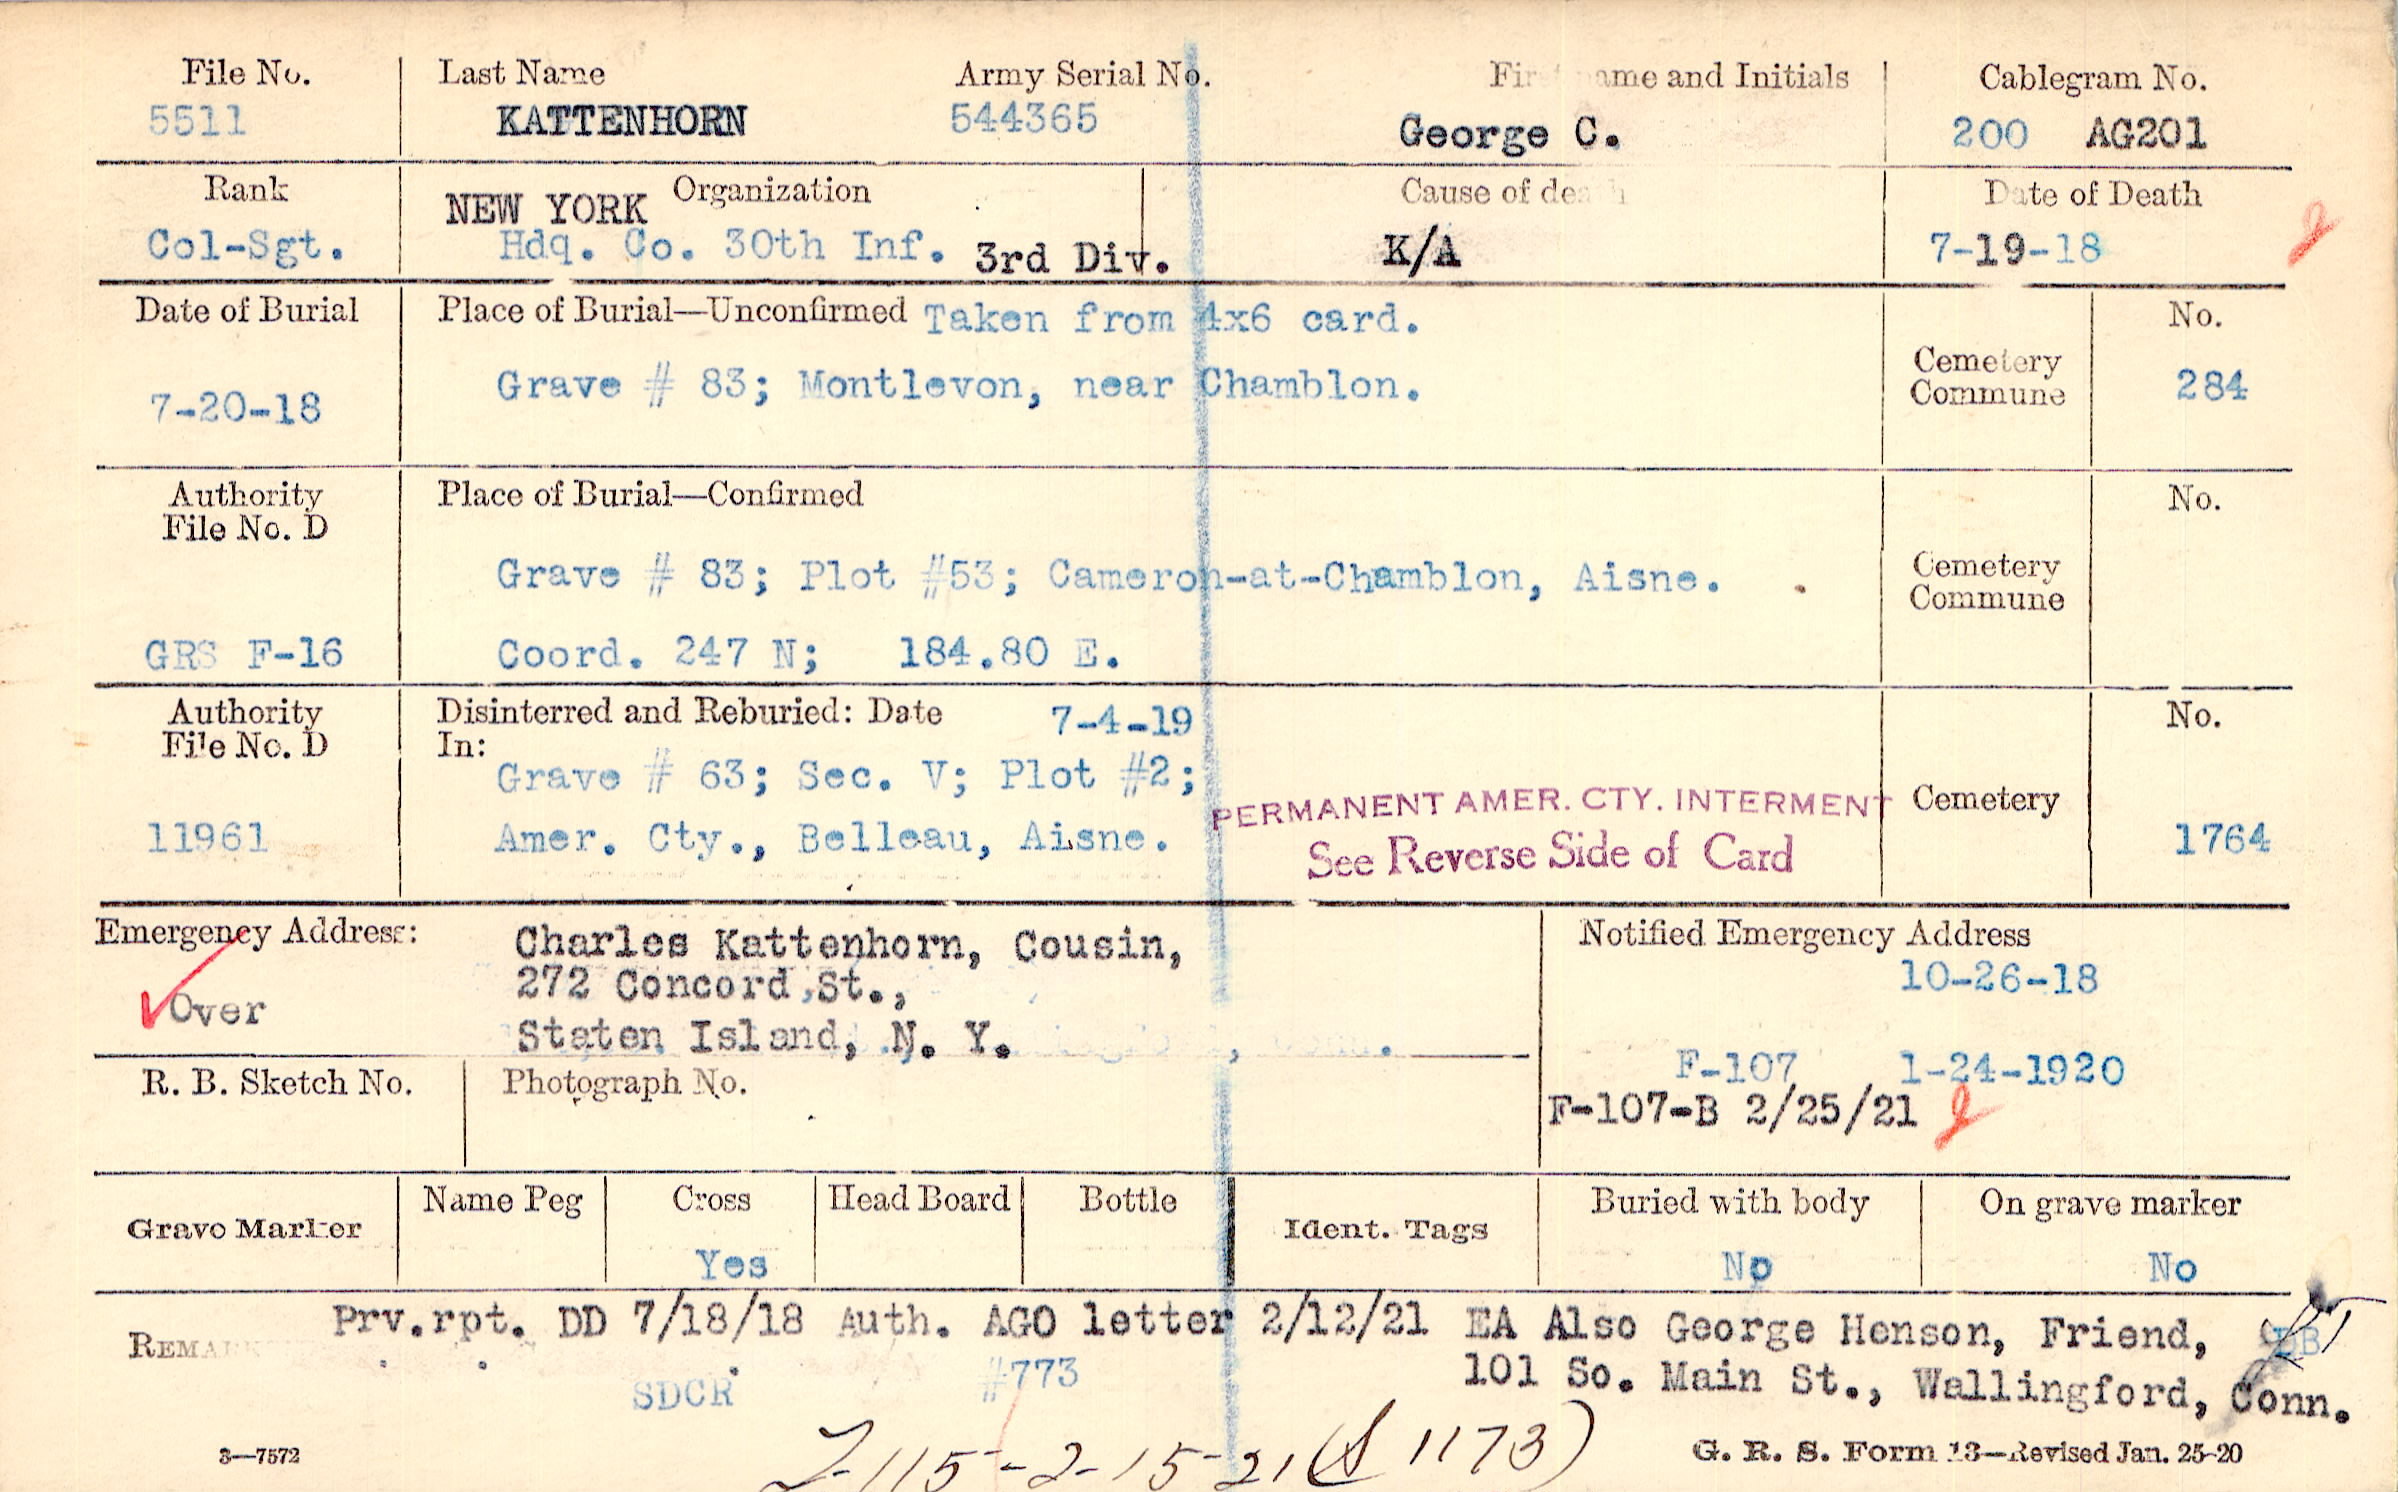 File No. Last Name Army Serial No. First name and Initials Cablegram No.
5511 KATTENHORN 544365 George C. 200 AG201
Rank NEW YORK Organization Cause of death Date of Death
Col-Sgt. Hdq. Co. 30th Inf. 3rd Div. K/A 7-19-18
Date of Burial Place of Burial—Unconfirmed Taken from 4x6 card. No.
7-20-18 Grave # 83; Montlevon, near Chamblon. Cemetery Commune 284
Authority File No. D Place of Burial—Confirmed No.
Grave # 83; Plot #53; Cameron-at-Chamblon, Aisne. Cemetery Commune
GRS F-16 Coord. 247 N; 184.80 E.
Authority File No. D Disinterred and Reburied: Date 7-4-19 No.
In: Grave # 63; Sec. V; Plot #2;
PERMANENT AMER. CTY. INTERMENT Cemetery
11961 Amer. Cty., Belleau, Aisne. See Reverse Side of Card 1764
Emergency Address: Charles Kattenhorn, Cousin, Notified Emergency Address
272 Concord St., 10-26-18
Over
Staten Island, N. Y.
F-107 1-24-1920
R. B. Sketch No. Photograph No. F-107-B 2/25/21
Grave Marker Name Peg Cross Head Board Bottle Ident. Tags Buried with body On grave marker
Yes No No
REMARKS Prv.rpt. DD 7/18/18 Auth. AGO letter 2/12/21 EA Also George Henson, Friend,
SDCR #773 101 So. Main St., Wallingford, Conn.
3—7572 G. R. S. Form 13—Revised Jan. 25-20